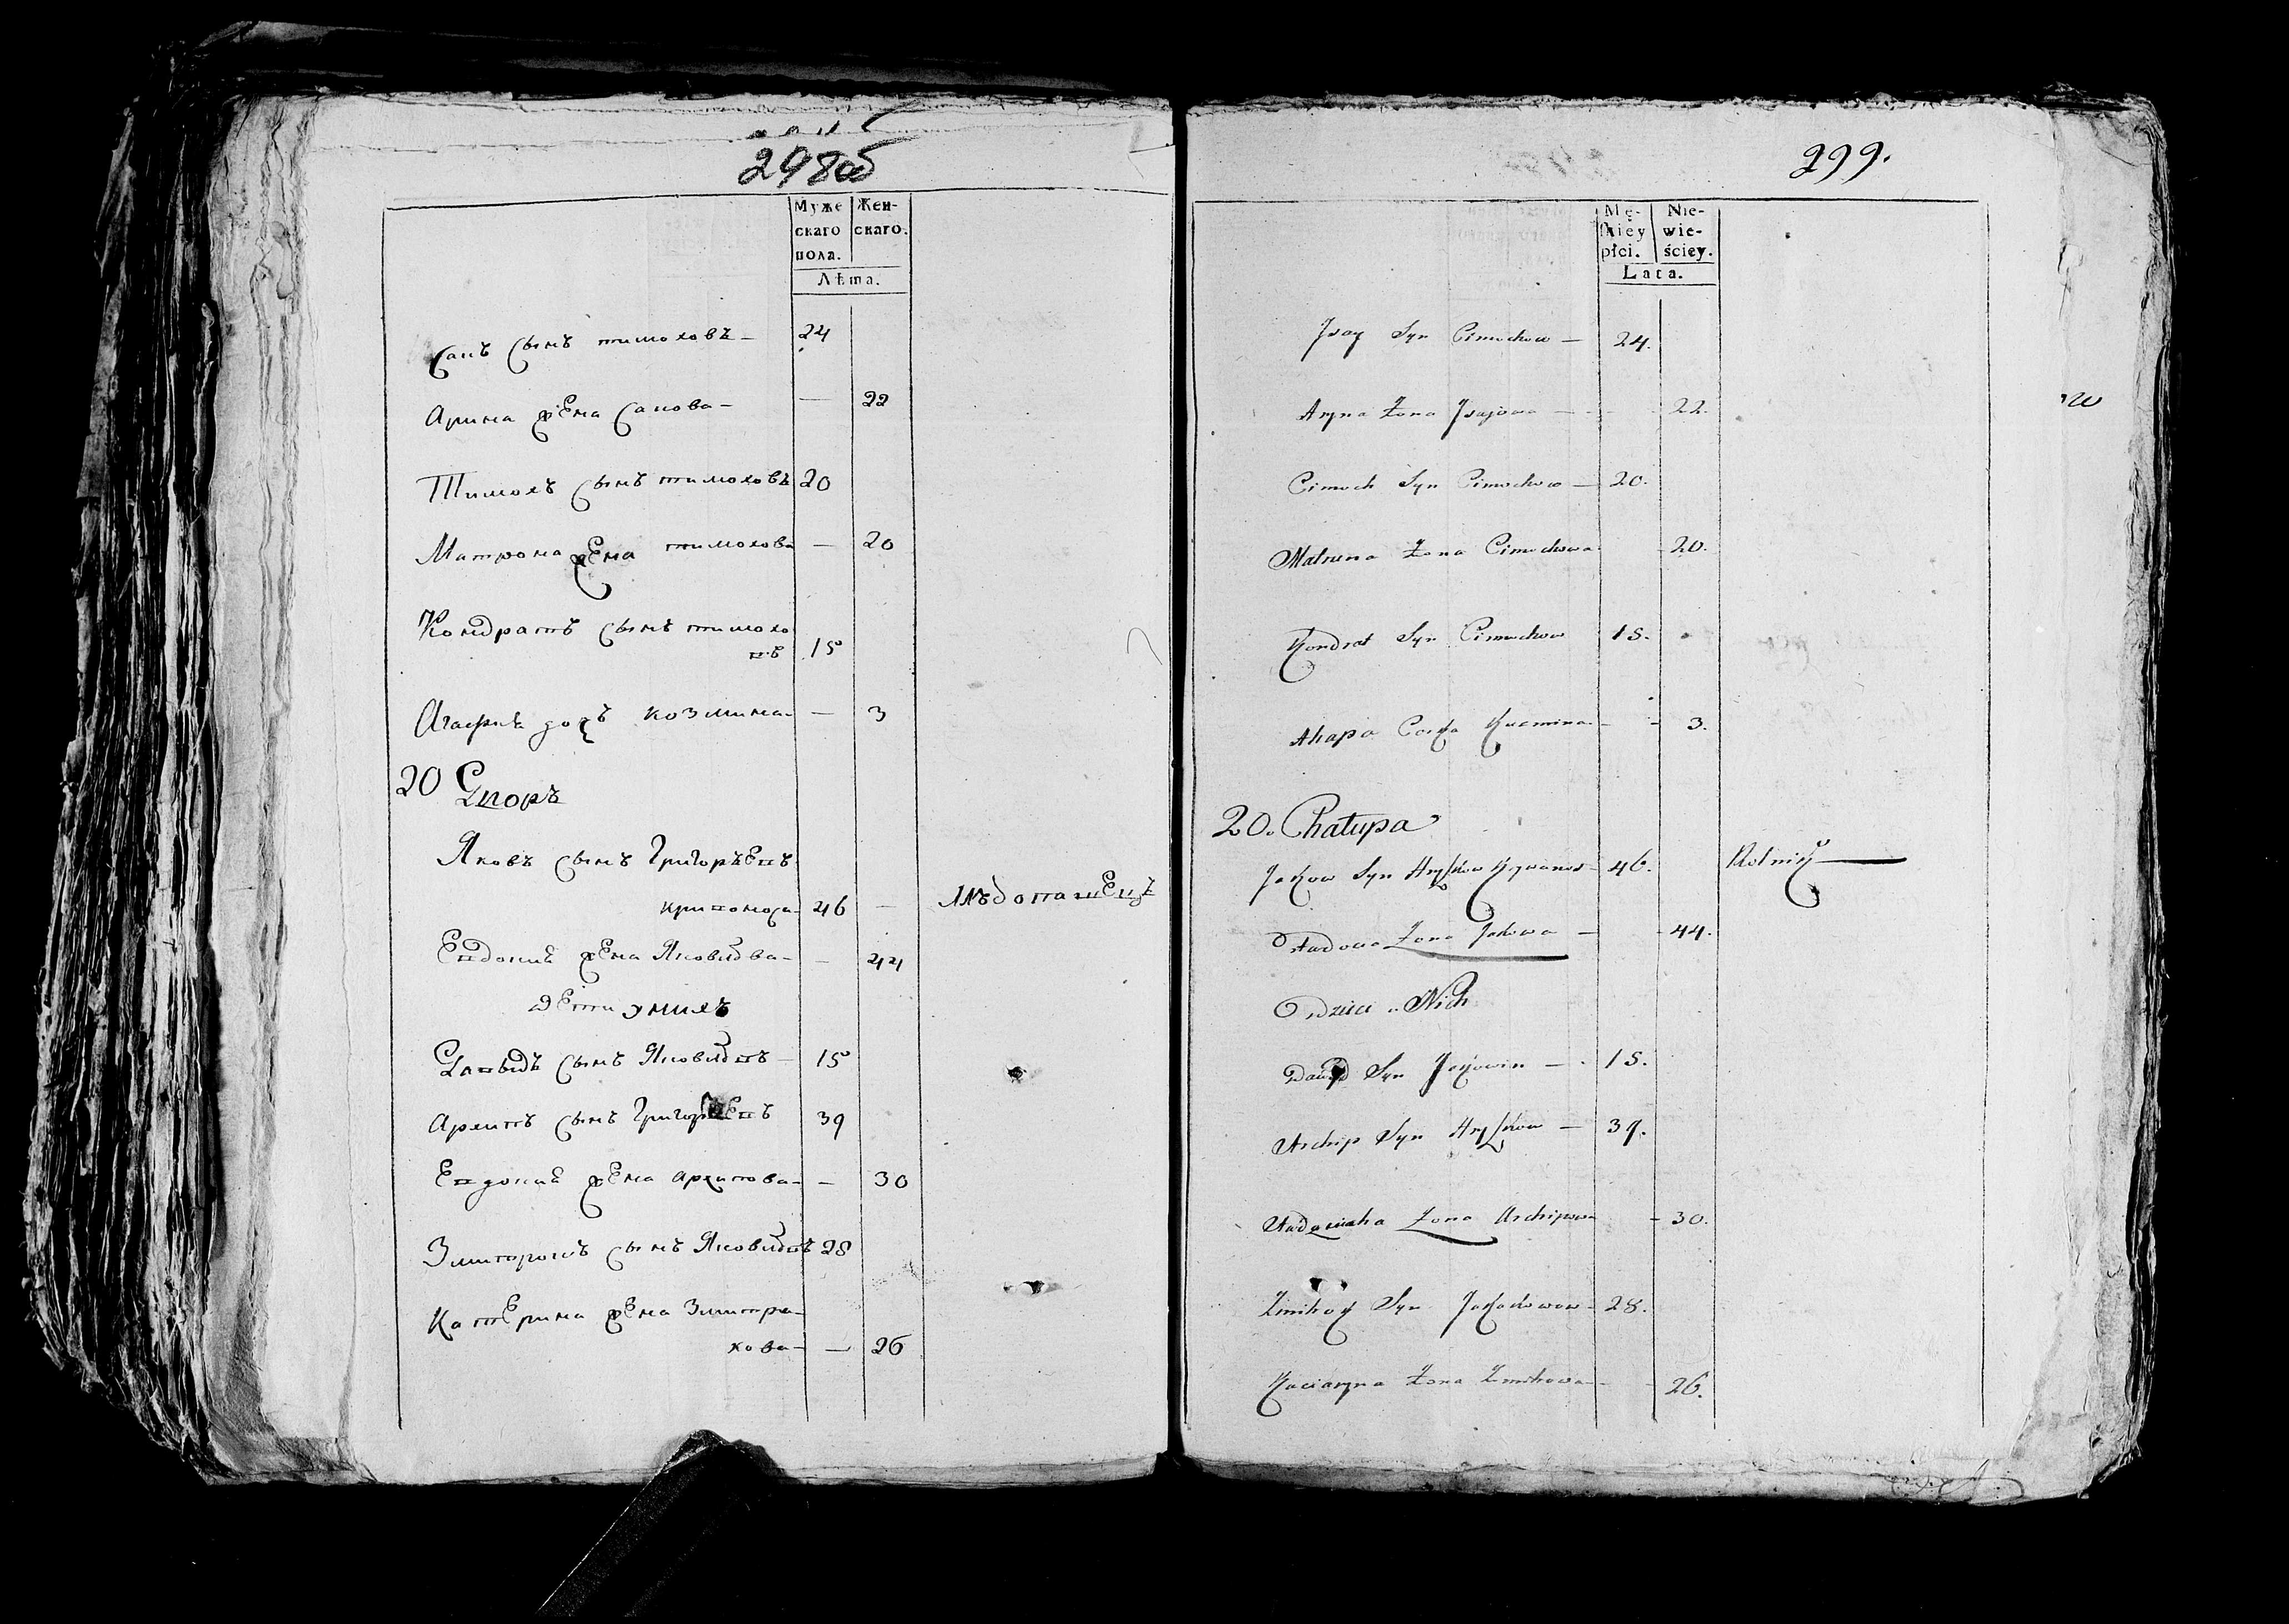 298об
Муже
скаго
пола.
Жен-
скаго.
Лѣта.
Сапъ сынъ тимоховъ — 24
Арина жена Сапова — — 22
Тимохъ сынъ тимоховъ 20
Матрона жена тимохова — 20
Кондратъ сынъ тимохо
въ 15
Агафия дочъ козмина — — 3
20 Дворъ
Яковъ сынъ Григоръевъ
кривоноса 46 — хлѣбопашецъ
Евдокия жена Яковлева — — 44
дети у нихъ
Давыдъ сынъ Яковлевъ — 15
Архипъ сынъ Григоръевъ 39
Евдокия жена архипова — — 30
Змитрохъ сынъ Яковлевъ 28
Катерина жена Змитро-
хова — — 26
299.
Mę-
skiey
płci.
Nie-
wie-
ściey.
Lata.
Jsay Syn Cimochow — 24.
Aryna Żona Jsajowa — 22.
Cimoch Syn Cimochow — 20.
Matruna Żona Cimochowa 20.
Kondrat Syn Cimochow 15.
Ahapa Corka Kuzmina — 3.
20. Chałupa
Jakow Syn Hryszkow Krywonos — 46. Rolnik
Audocia Żona Jakowa — 44.
Dzieci u Nich
Dawyd Syn Jakowin — 15.
Archip Syn Hryszkow — 39.
Żona Archipowa 30.
Syn 28.
Kaciaryna Żona 26.